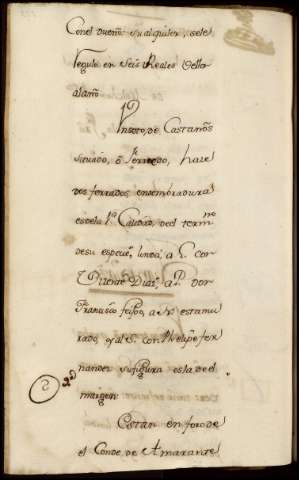 Con el dueño su alquiler, se le
regula en seis Reales Vellon
al año
Un soto, de Castaños
situado, ô Pernedo, haze
dos ferrados en sembradura
es de la 1ª Calidad, del termno
de su especie, linda, a L. con
Vicente Dias, a P. don
Francisco feijoo, a N. esta mu
rado, y al S. con Phelipe fer
nandez su figura es la de el
margen
Estan en foro de
el Conde de Amarante